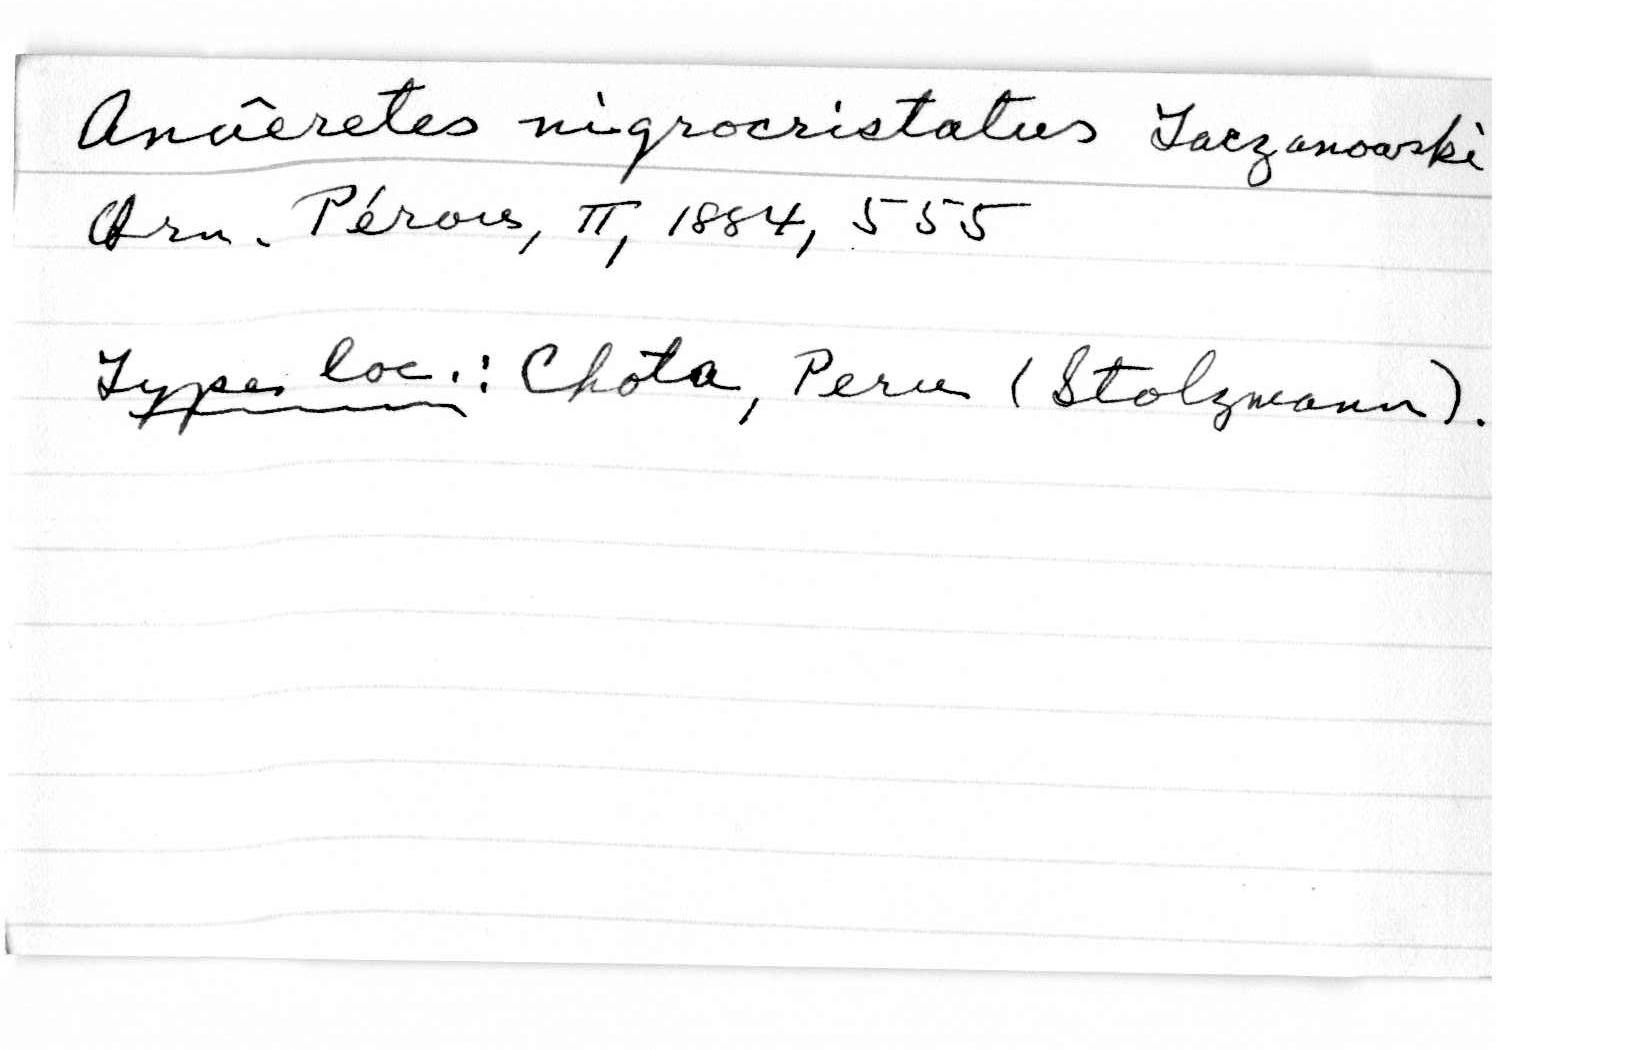 Anaeretes nigrocristatus Taczanowski
Orn. Pérou, II, 1884, 555
Type loc.: Chota, Peru (Stolzmann).